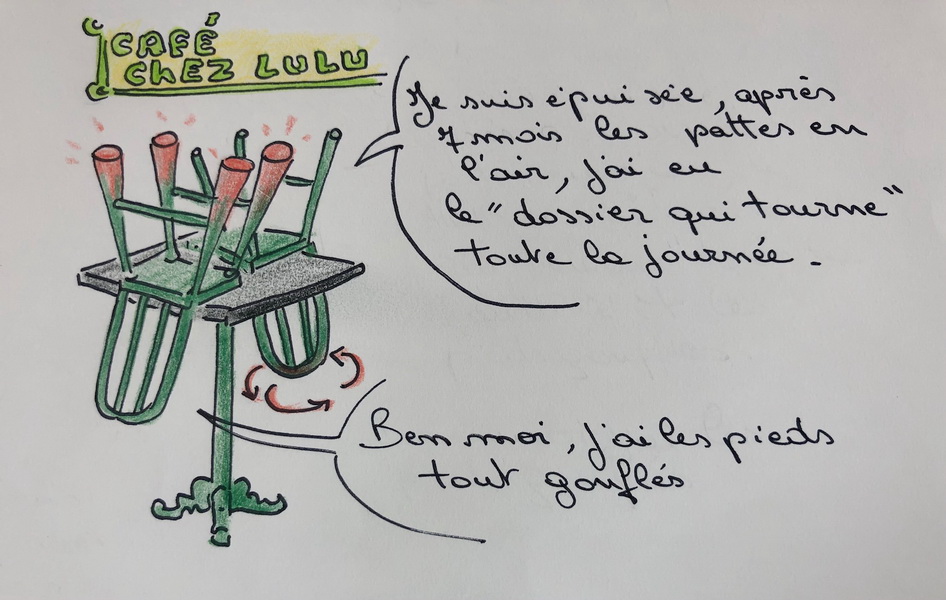 CAFÉ
CHEZ LULU
Je suis épuisée, après
7 mois les pattes en
l'air, j'ai eu
le "dossier qui tourne"
toute la journée.
Ben moi, j'ai les pieds
tout gonflés